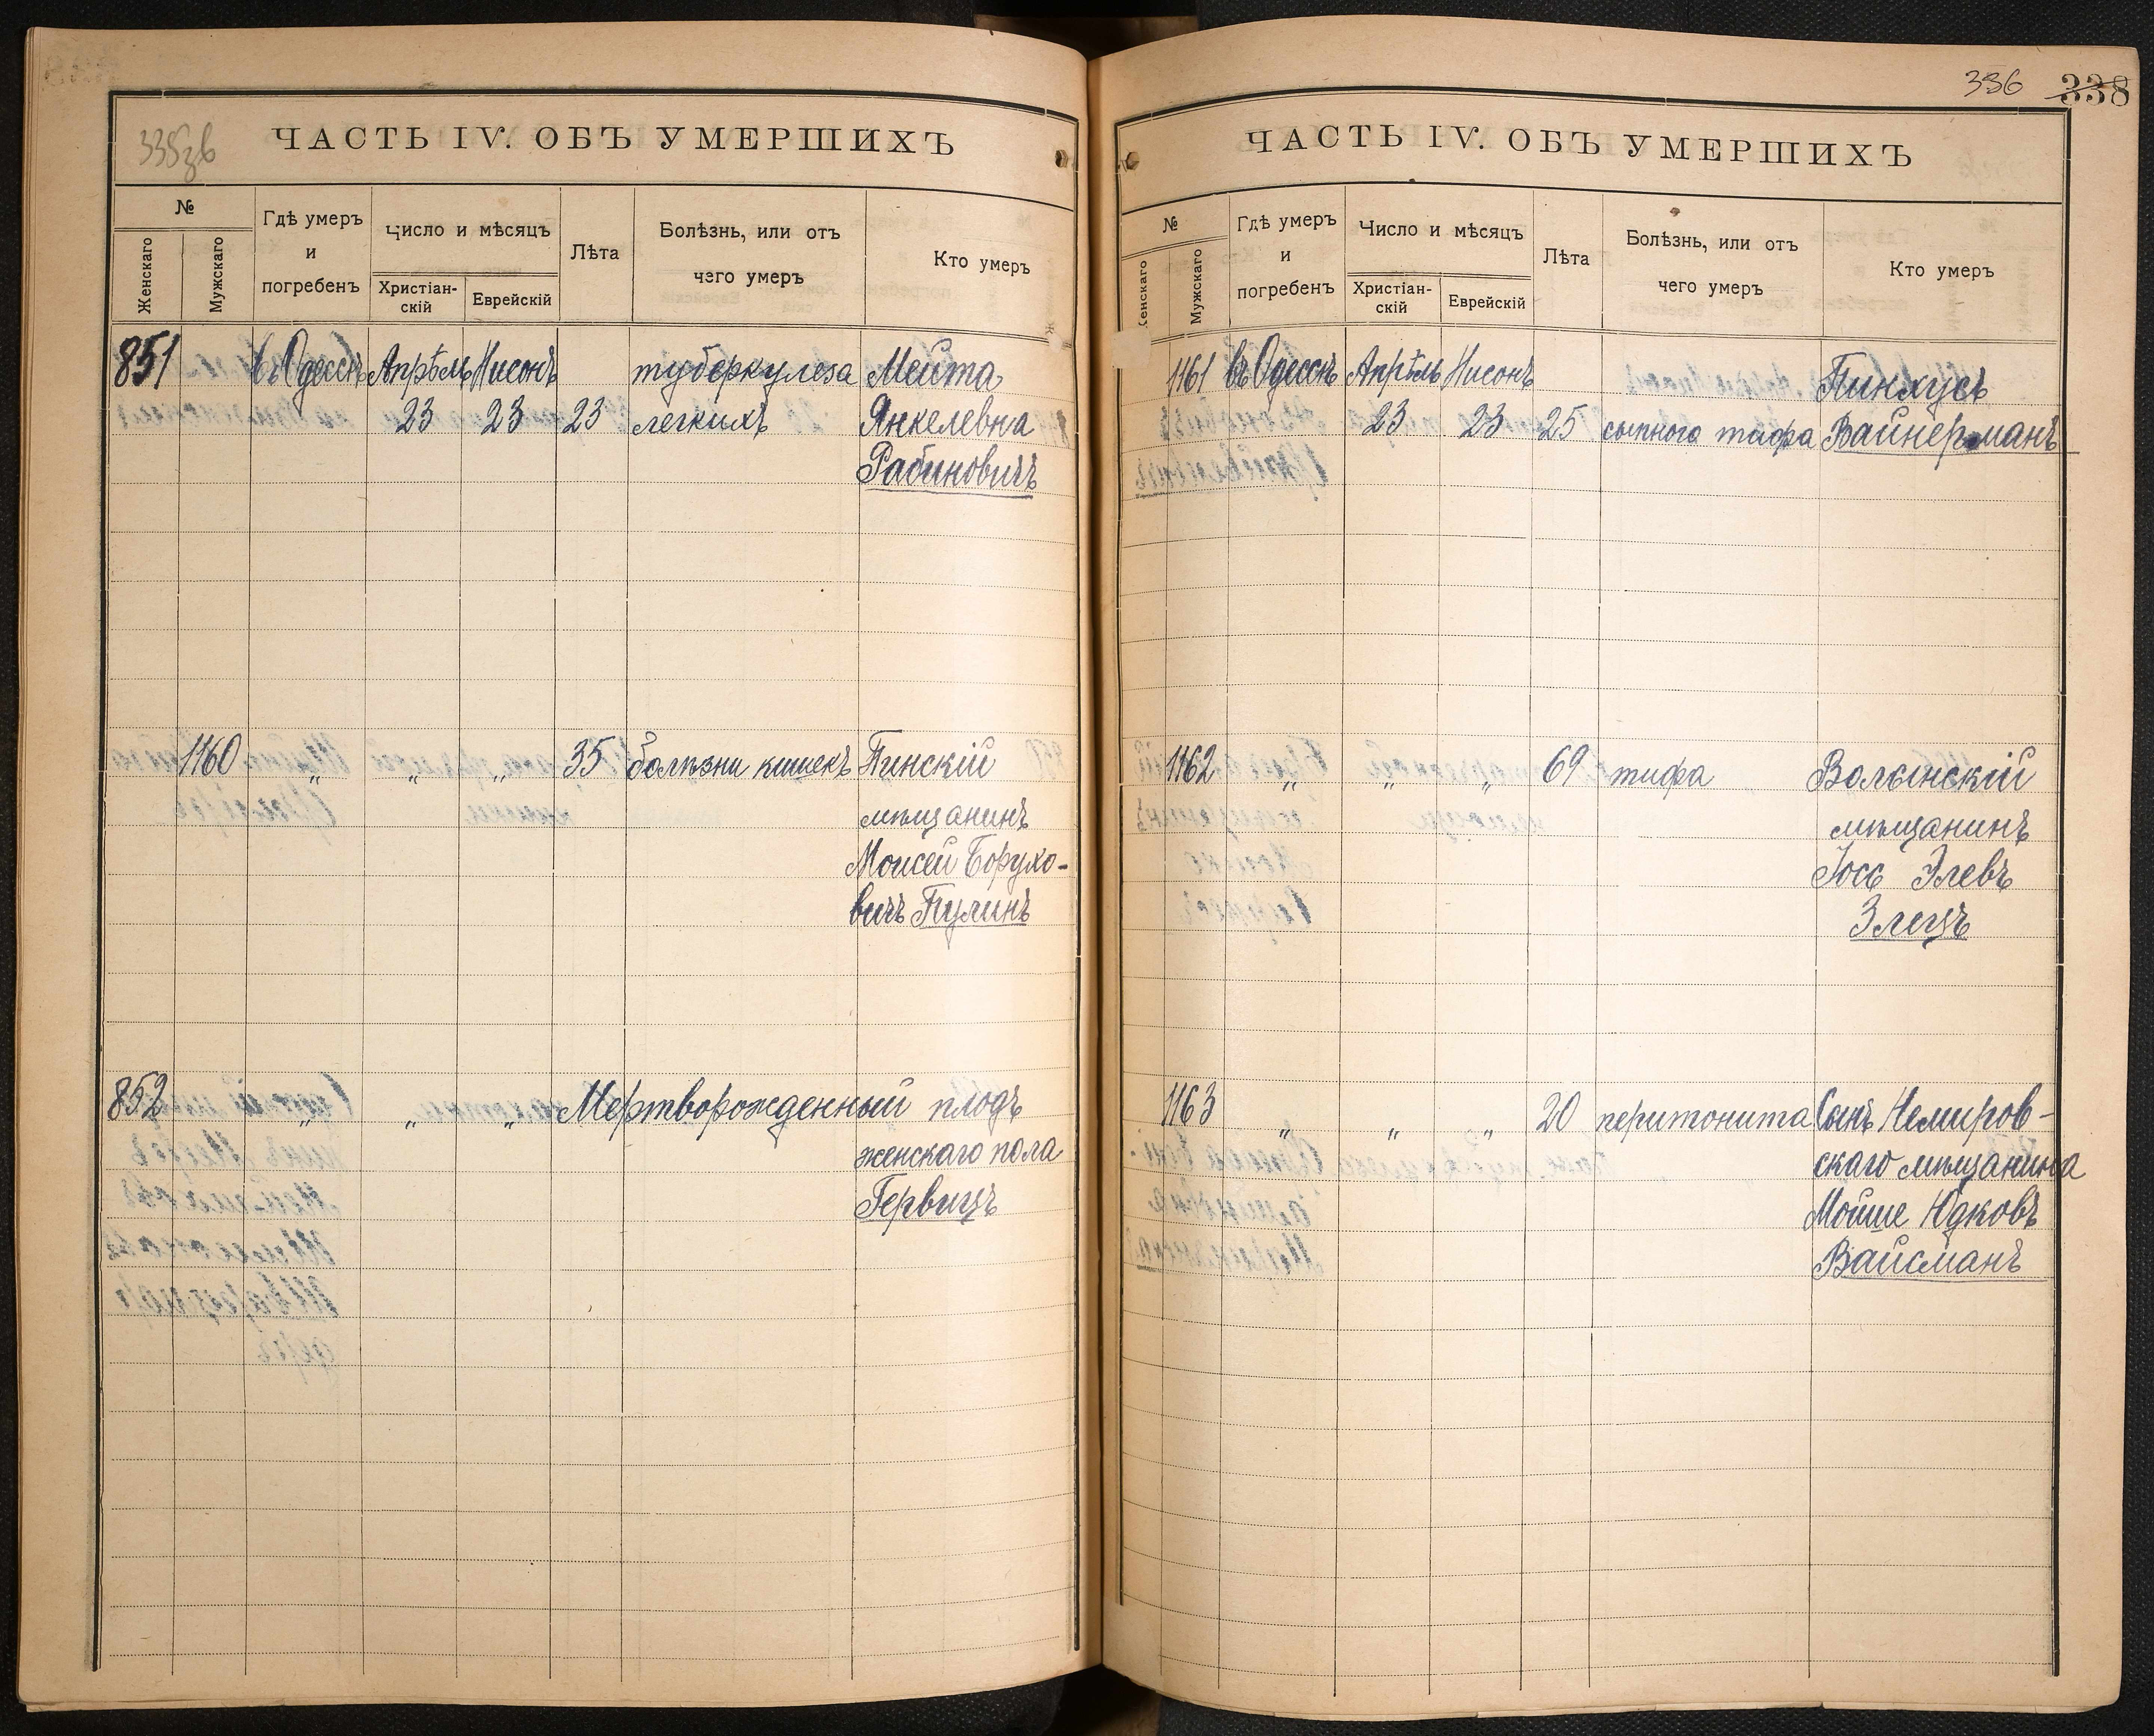 335зв
ЧАСТЬ IV. ОБЪ УМЕРШИХЪ
№
Женскаго
Мужскаго
Гдѣ умеръ
и
погребенъ
Число и мѣсяцъ
Христіан-
скій
Еврейскій
Лѣта
Болѣзнь, или отъ
чего умеръ
Кто умеръ
851 въ Одессѣ Апрѣль Нисонъ туберкулеза Мейта
23 23 23 легкихъ Янкелевна
Рабиновичъ
1160 „ „ „ 35 болѣзни кишекъ Пинскій
мѣщанинъ
Моисей Борухо-
вичъ Пулинъ
852 „ „ „ Мертворожденный плодъ
женскаго пола
Гервицъ
336 338
ЧАСТЬ IV. ОБЪ УМЕРШИХЪ
№
Женскаго
Мужскаго
Гдѣ умеръ
и
погребенъ
Число и мѣсяцъ
Христіан-
скій
Еврейскій
Лѣта
Болѣзнь, или отъ
чего умеръ
Кто умеръ
1161 въ Одессѣ Апрѣль Нисонъ Пинхусъ
23 23 25 сыпного тифа Вайнерманъ
1162 „ „ „ 69 тифа Волынскій
мѣщанинъ
Іось Элевъ
Злецъ
1163 „ „ „ 20 перитонита Сынъ Немиров-
скаго мѣщанина
Мойше Юдковъ
Вайсманъ